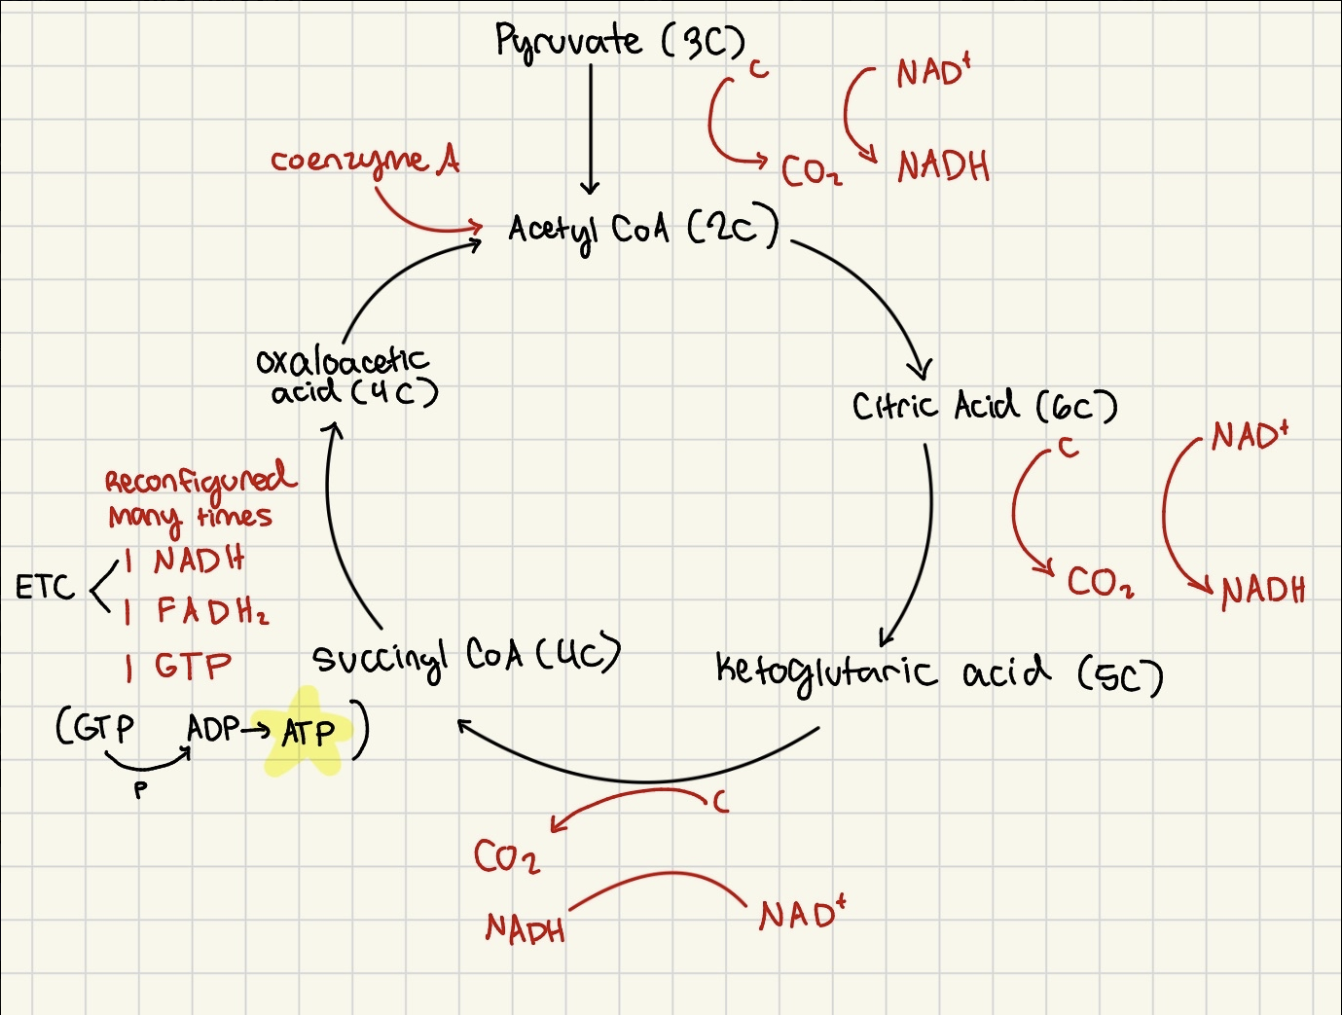 Pyruvate (3C)
C
NAD⁺
CO₂
NADH
coenzyme A
Acetyl CoA (2C)
oxaloacetic
acid (4C)
Citric Acid (6C)
C
NAD⁺
CO₂
NADH
Reconfigured
many times
1 NADH
ETC
1 FADH₂
1 GTP
succinyl CoA (4C)
Ketoglutaric acid (5C)
(GTP ADP → ATP)
P
C
CO₂
NADH
NAD⁺